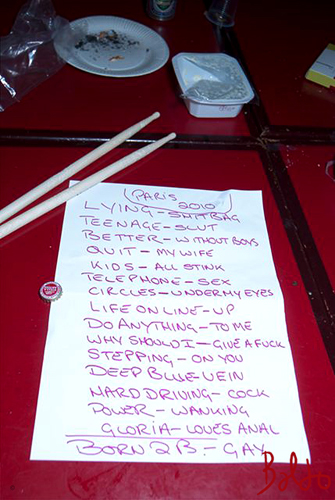 (PARIS
2010)
LYING - SHITBAG
TEENAGE - SLUT
BETTER - WITHOUT BOYS
QUIT - MY WIFE
KIDS - ALL STINK
TELEPHONE - SEX
CIRCLES - UNDER MY EYES
LIFE ON LINE - UP
DO ANYTHING - TO ME
WHY SHOULD I - GIVE A FUCK
STEPPING - ON YOU
DEEP BLUE - VEIN
HARD DRIVING - COCK
POWER - WANKING
GLORIA - LOVES ANAL
BORN 2 B. - GAY